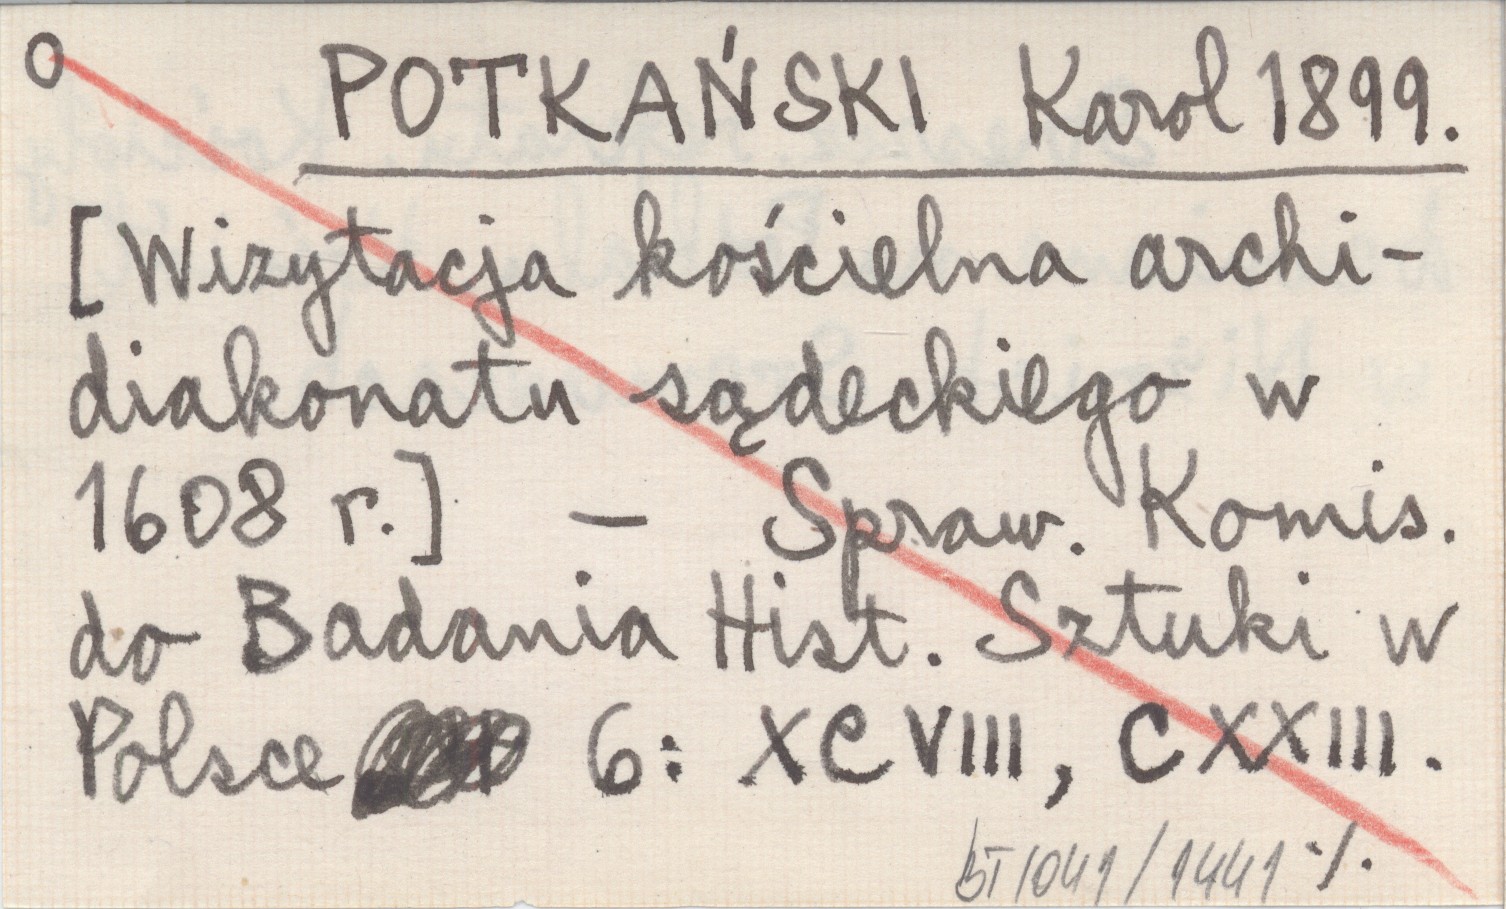 O POTKAŃSKI Karol 1899.
[Wizytacja kościelna archi-
diakonatu sądeckiego w
1608 r.] — Spraw. Komis.
do Badania Hist. Sztuki w
Polsce 6: XCVIII, CXXIII.
1041/1441 ./.